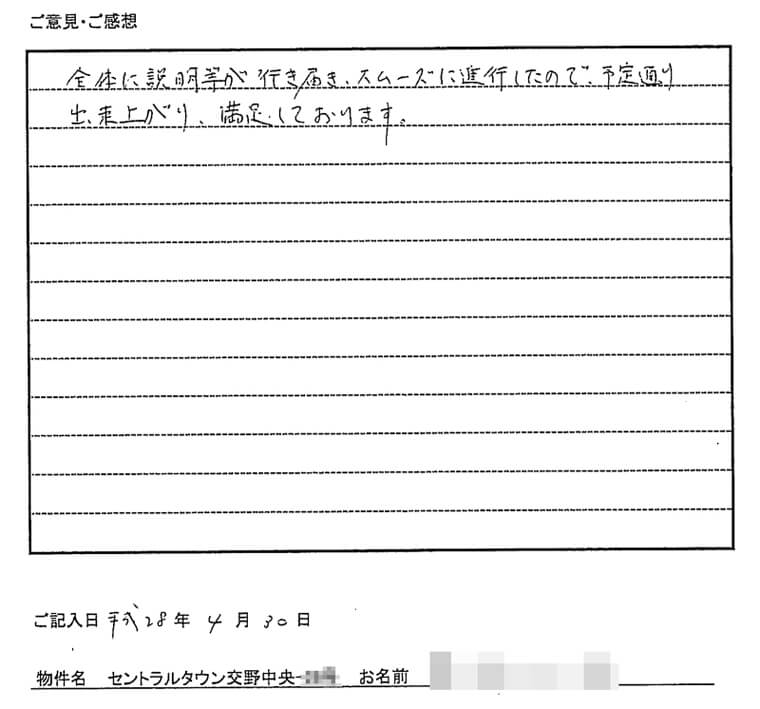 ご意見・ご感想
全体に説明等が行き届き、スムーズに進行したので、予定通り
出来上がり、満足しております。
ご記入日 平成28年 4月 30日
物件名 セントラルタウン交野中央- お名前